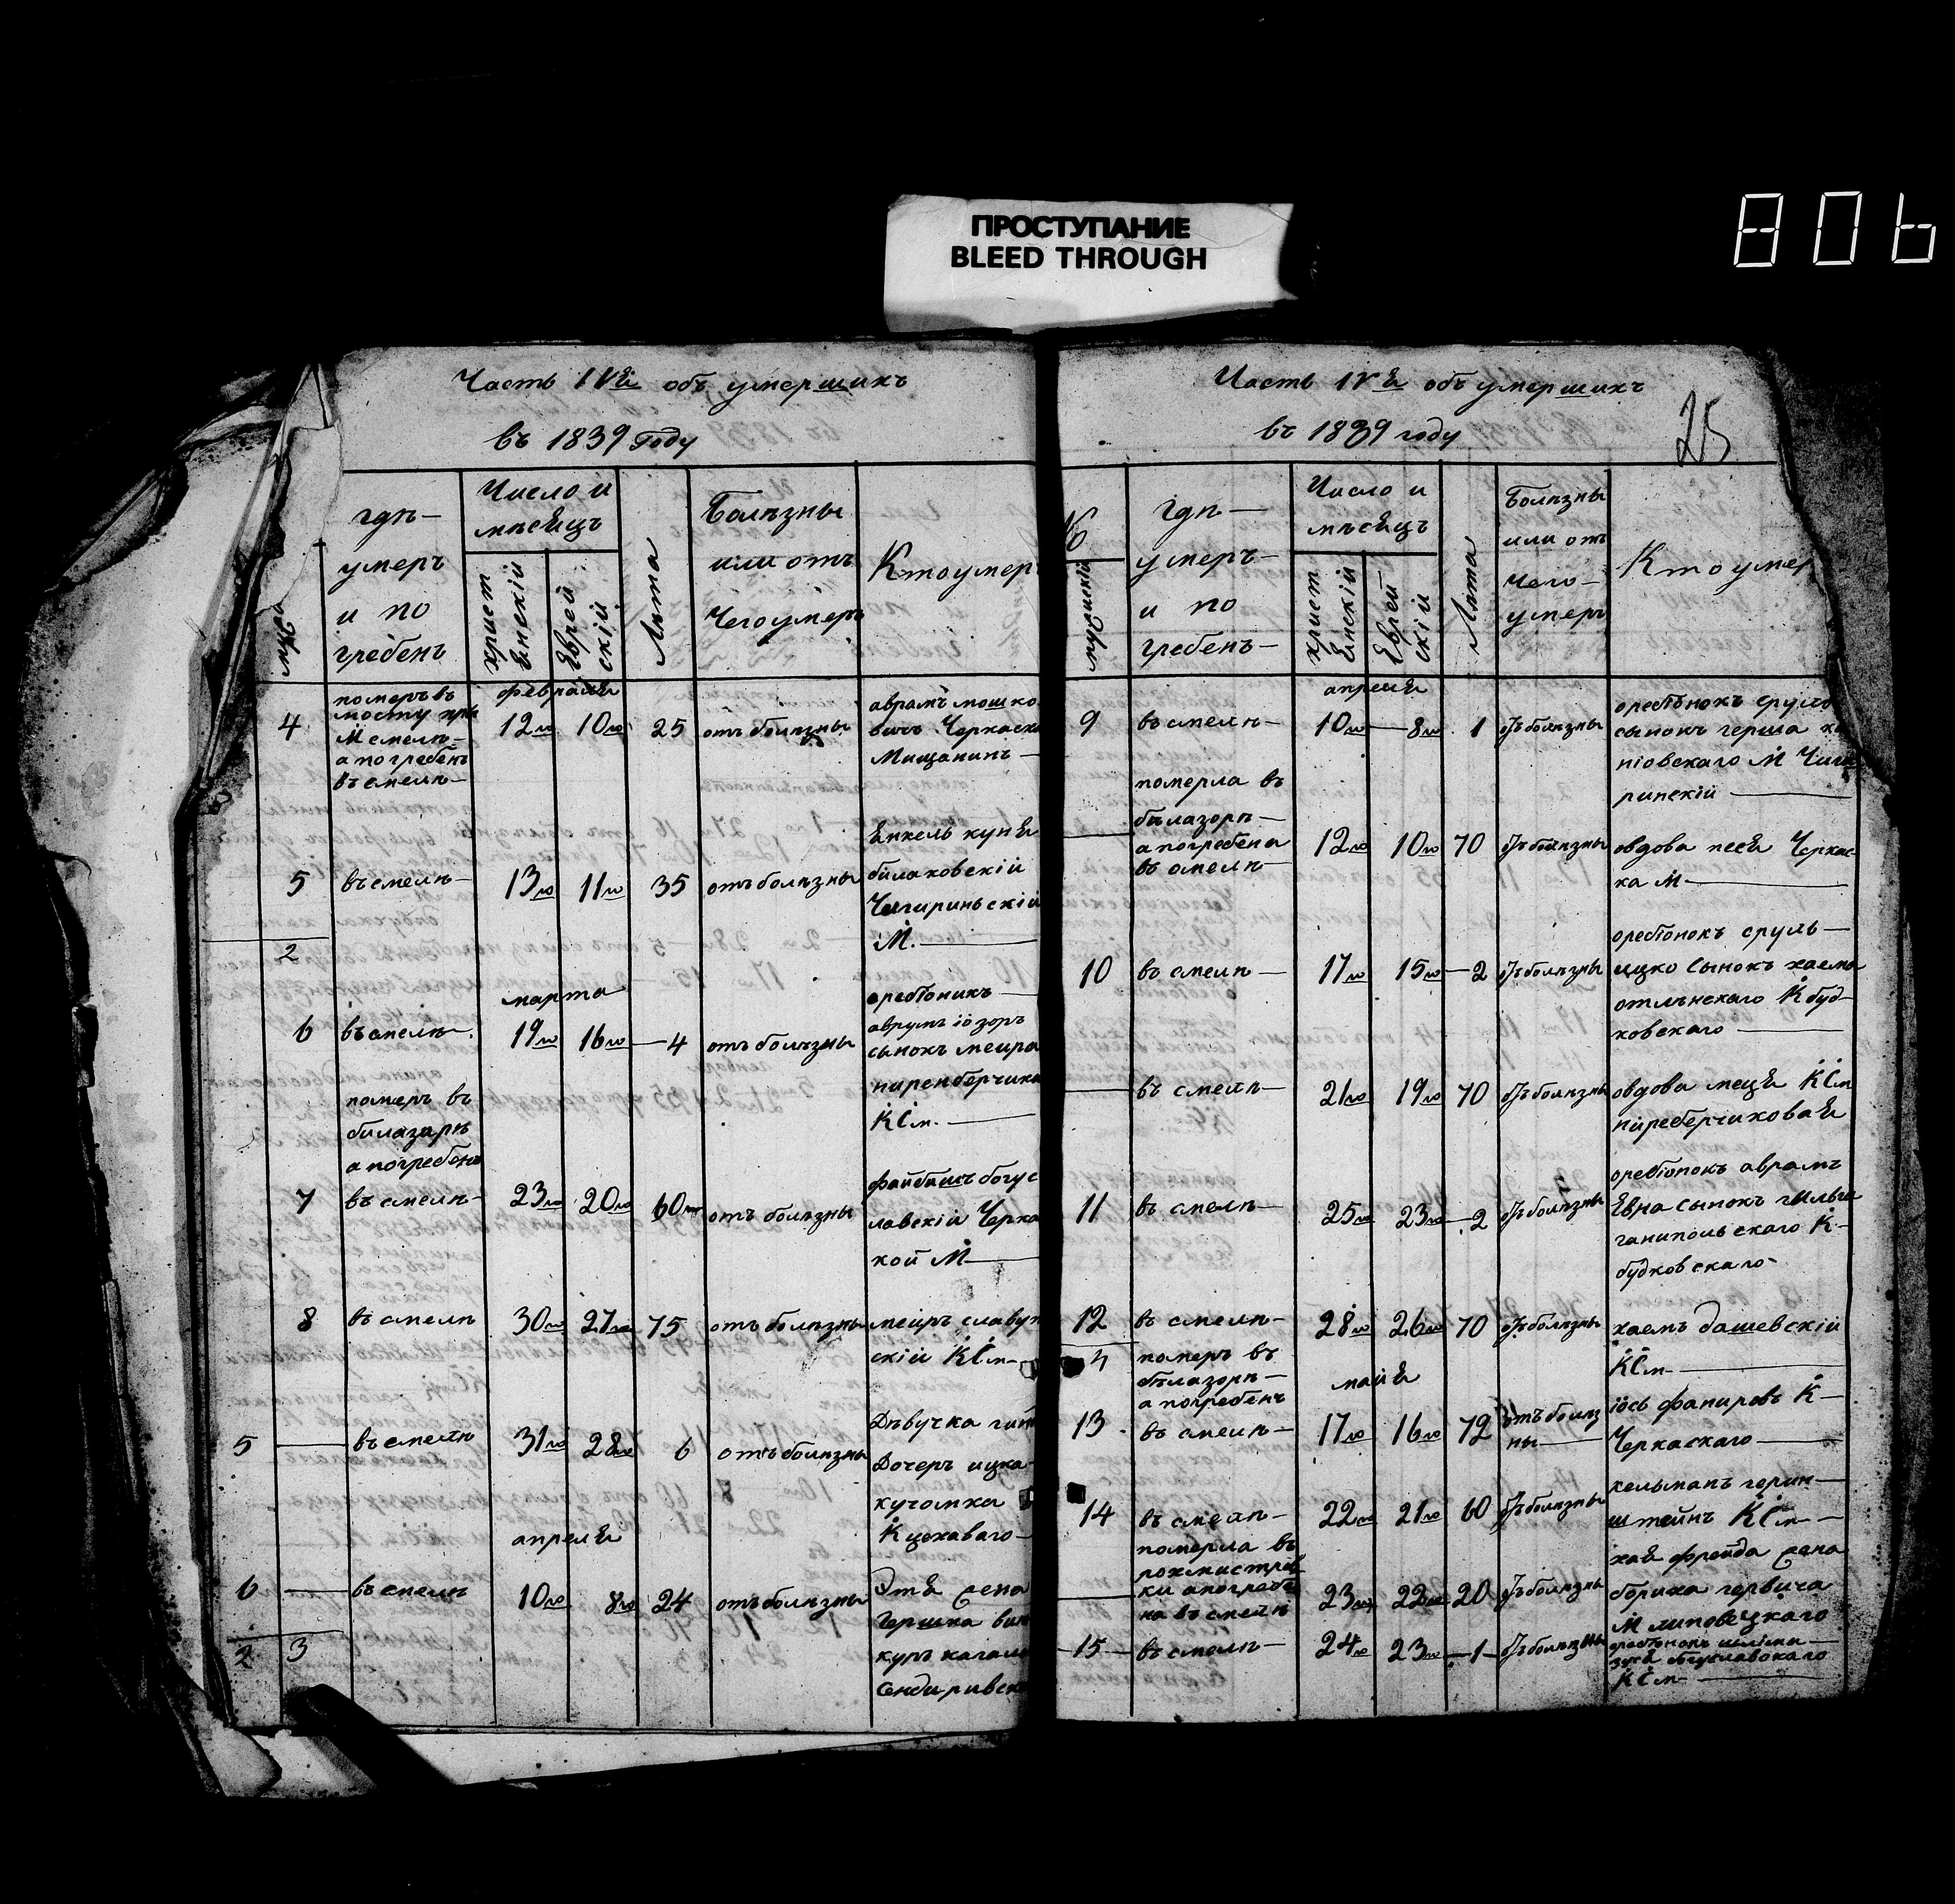 ПРОСТУПАНИЕ
BLEED THROUGH
806
Часть IVЯ объ умершихъ
въ 1839 году
гдѣ—
умеръ
и по
гребенъ
Число и
мѣсяцъ
христ
Янскій
Еврей
скій
Лѣта
Болѣзны
или отъ
Чего умеръ
Кто умеръ
4
померъ въ
мосту при
М смелѣ—
а погребенъ
въ смелѣ—
февраля
12го
10го
25
отъ болѣзны
аврамъ мошко
вичъ Черкаска
Мищанинъ—
5
въ смелѣ—
13го
11го
35
отъ болѣзны
Янкель куня
билаковскій
Чигириньскій
М.—
2
марта
6
въ смелѣ—
19го
16го
—4
отъ болѣзны
оребіоникъ—
аврумъ іозоръ
сынокъ меира
ниренберчика
КСм.—
7
померъ въ
билазорѣ
а погребенъ
въ смелѣ—
23го
20го
60
отъ болѣзны
файбишъ богус
лавскій Черка
кой М—
8
въ смелѣ
30го
27го
75
отъ болѣзны
меиръ славут
скій КСм—
5
—
въ смелѣ
31го
28го
6
отъ болѣзны
Дѣвучка
Дочеръ ицка
кучомка
К цехаваго—
апреля
6
—
въ смелѣ
10го
8го
24
отъ болѣзны
Этя
Гершка вин
куръ кагала
2
3
Часть IVЯ объ умершихъ
въ 1839 году
25
№
мужискій
гдѣ—
умеръ—
и по
гребенъ—
Число и
мѣсяцъ
христ
Янскій
Еврей
скій
Лѣта
Болѣзны
или отъ
чего—
умеръ
Кто умер
апреля
9
въ смелѣ—
10го
—8го
1
отъ болѣзны
оребіонокъ сруль
сынокъ герша
ніовскаго М Чиги
ринскій—
—
померла въ
билазорѣ—
а погребена
въ смелѣ
12го
10го
70
отъ болѣзны
овдова песя Черкас
ка М—
10
въ смелѣ—
17го
15го
—2
отъ болѣзны
оребіонокъ сруль—
ицко сынокъ хаема
отлѣнскаго К буд—
ковскаго—
—
въ смелѣ—
21го
19го
70
отъ болѣзны
овдова меця КСм
ниреберчиковая
11
въ смелѣ—
25го
23го
—2
отъ болѣзны
оребіонокъ аврамъ
Евна сынокъ
ганипольскаго К—
будковскаго—
12
въ смелѣ—
28го
26го
70
отъ болѣзны
хаемъ дашевскій
КСм—
4
мая
13
померъ въ
билазорѣ—
а погребенъ
въ смелѣ—
17го
16го
72
отъ болѣз
ны—
іось фанировъ К—
Черкаскаго—
14
въ смелѣ—
22го
21го
60
отъ болѣзны
кельманъ герин—
штейнъ КСм—
—
померла въ
ротмистров
ки а погребе
на въ смелѣ
23го
22го
20
отъ болѣзны
хая фрейда
бориха гервича
М липовецкаго
15
въ смелѣ—
24го
23го
—1—
отъ болѣзны
оребіонокъ
богуславскаго
КСм—